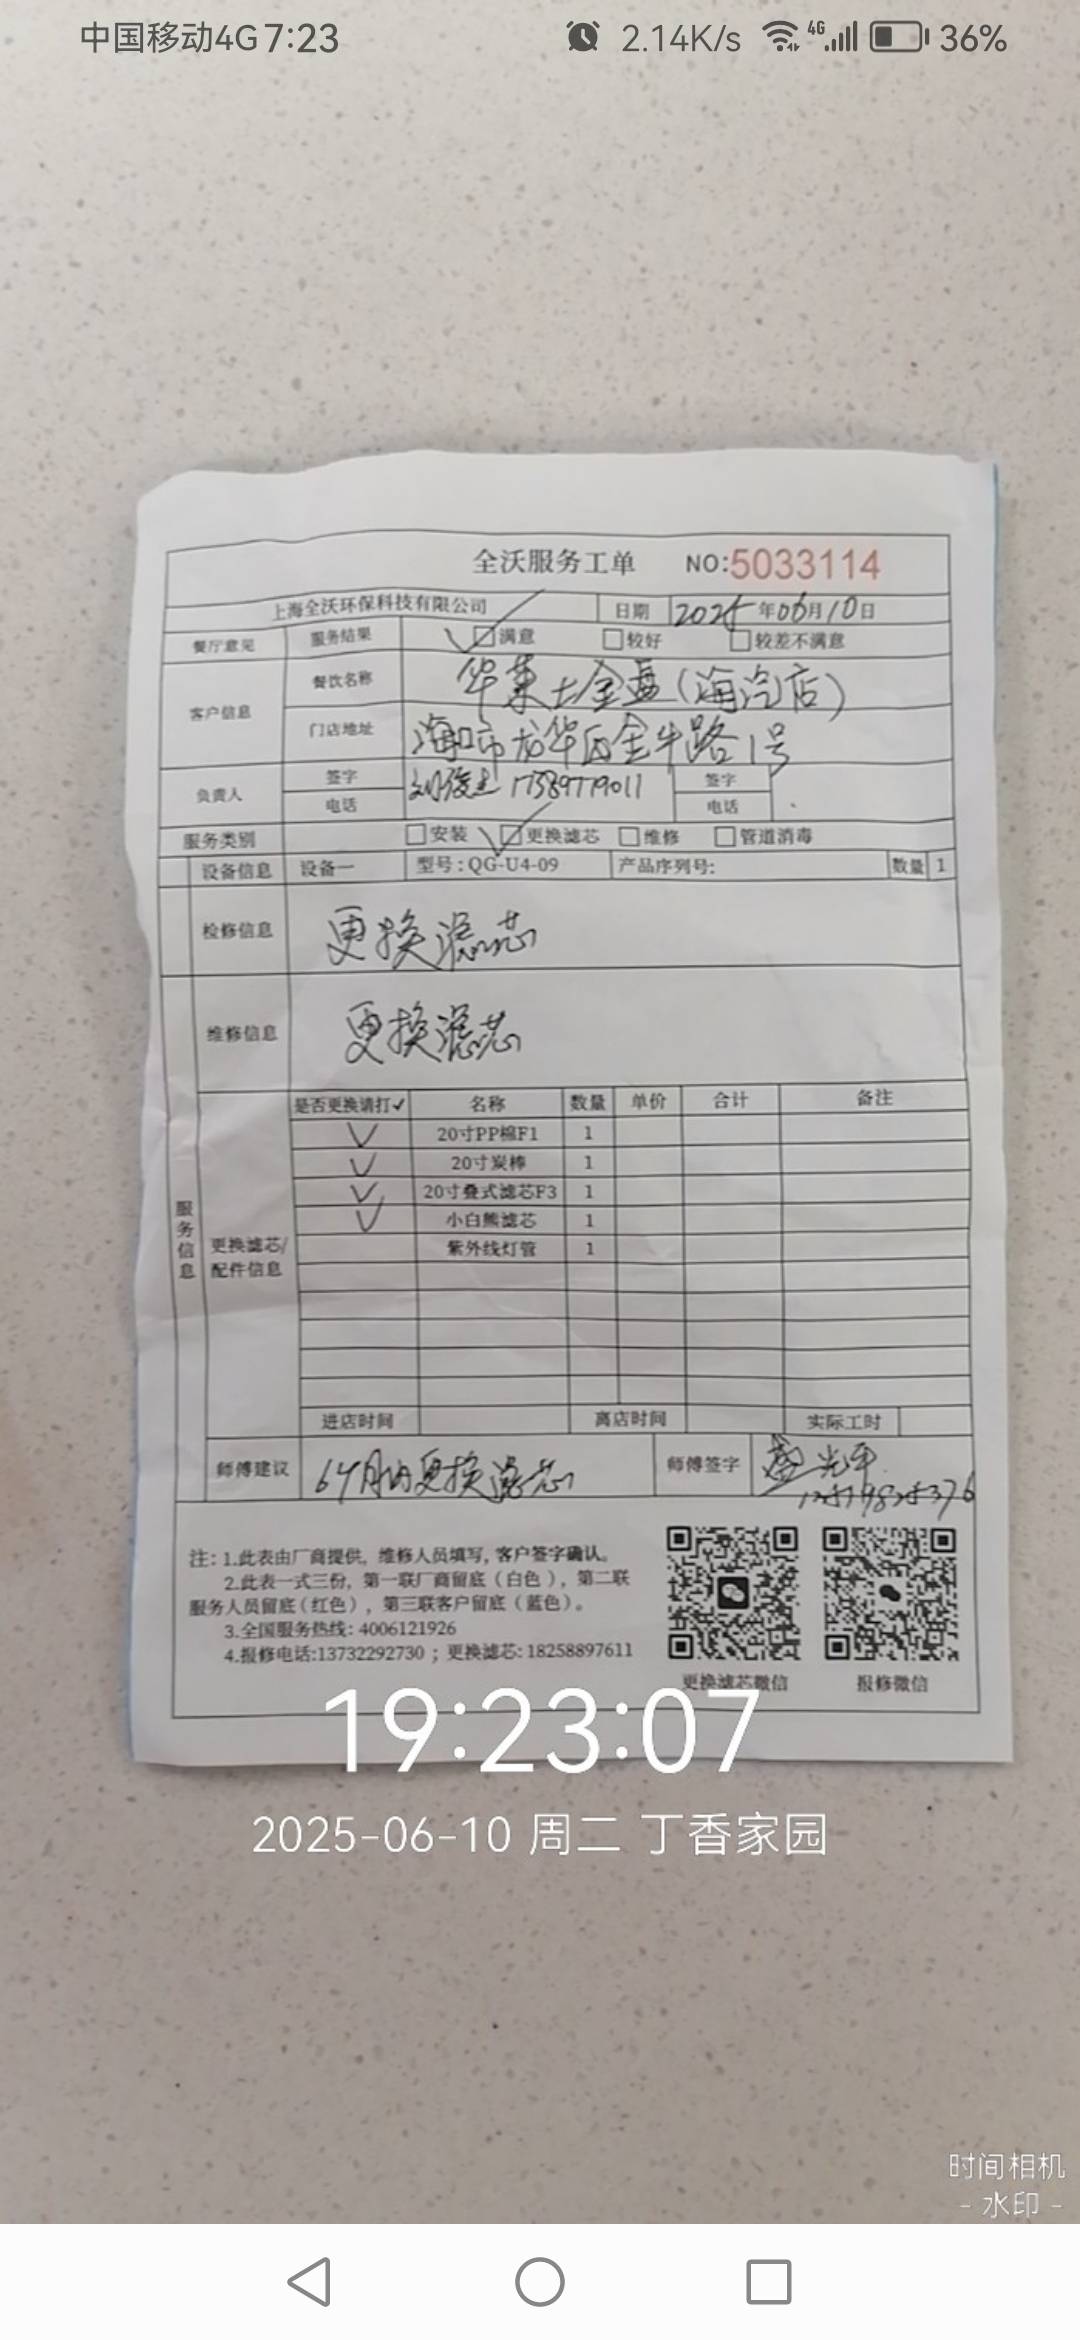 中国移动4G 7:23 2.14K/s 4G 36%
全沃服务工单 NO:5033114
上海全沃环保科技有限公司 日期 2025年06月10日
餐厅意见 服务结果 满意 较好 较差不满意
客户信息 餐饮名称 华莱士金盘(海汽店)
门店地址 海口市龙华区金牛路1号
负责人 签字 签字
电话 17589779011 电话
服务类别 安装 更换滤芯 维修 管道消毒
设备信息 设备一 型号:QG-U4-09 产品序列号: 数量 1
检修信息 更换滤芯
维修信息 更换滤芯
服务信息
更换滤芯/配件信息
是否更换请打✓ 名称 数量 单价 合计 备注
✓ 20寸PP棉F1 1
✓ 20寸炭棒 1
✓ 20寸叠式滤芯F3 1
✓ 小白熊滤芯 1
紫外线灯管 1
进店时间 离店时间 实际工时
师傅建议 6个月内更换滤芯 师傅签字 盛光平
注:1.此表由厂商提供,维修人员填写,客户签字确认。
2.此表一式三份,第一联厂商留底(白色),第二联
服务人员留底(红色),第三联客户留底(蓝色)。
3.全国服务热线:4006121926
4.报修电话:13732292730;更换滤芯:18258897611
更换滤芯微信 报修微信
19:23:07
2025-06-10 周二 丁香家园
时间相机
- 水印 -